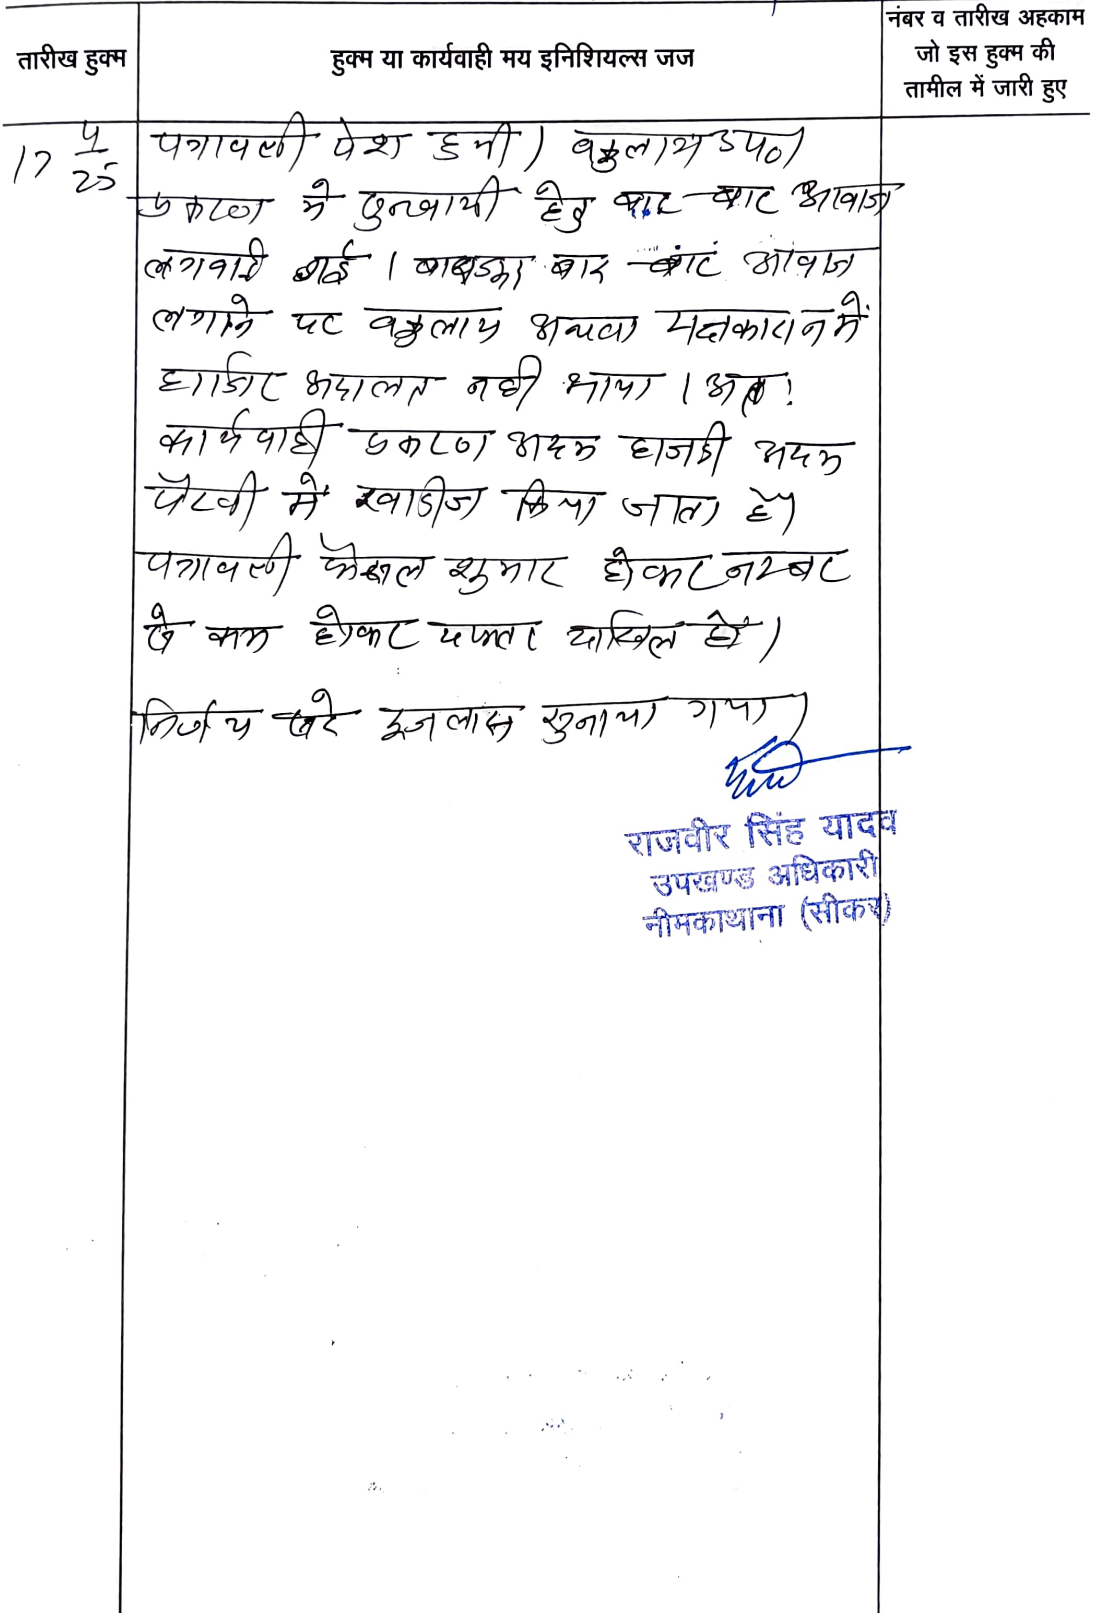 तारीख हुक्म
हुक्म या कार्यवाही मय इनिशियल्स जज
नंबर व तारीख अहकाम
जो इस हुक्म की
तामील में जारी हुए
17 4/25
पत्रावली पेश हुयी। वकुलाय उप०।
प्रकरण मे सुनवायी हेतु बार-बार आवाज
लगवायी गई। बावजूद बार बार आवाज
लगाने पर वकुलाय अथवा पक्षकारान में
हाजिर अदालत नही आया। अतः
कार्यवाही प्रकरण अदम हाजरी अदम
पैरवी में खारीज किया जाता है।
पत्रावली फैसल शुमार होकर नम्बर
से कम होकर दफ्तर दाखिल हो।
निर्णय सरे इजलास सुनाया गया।
राजवीर सिंह यादव
उपखण्ड अधिकारी
नीमकाथाना (सीकर)